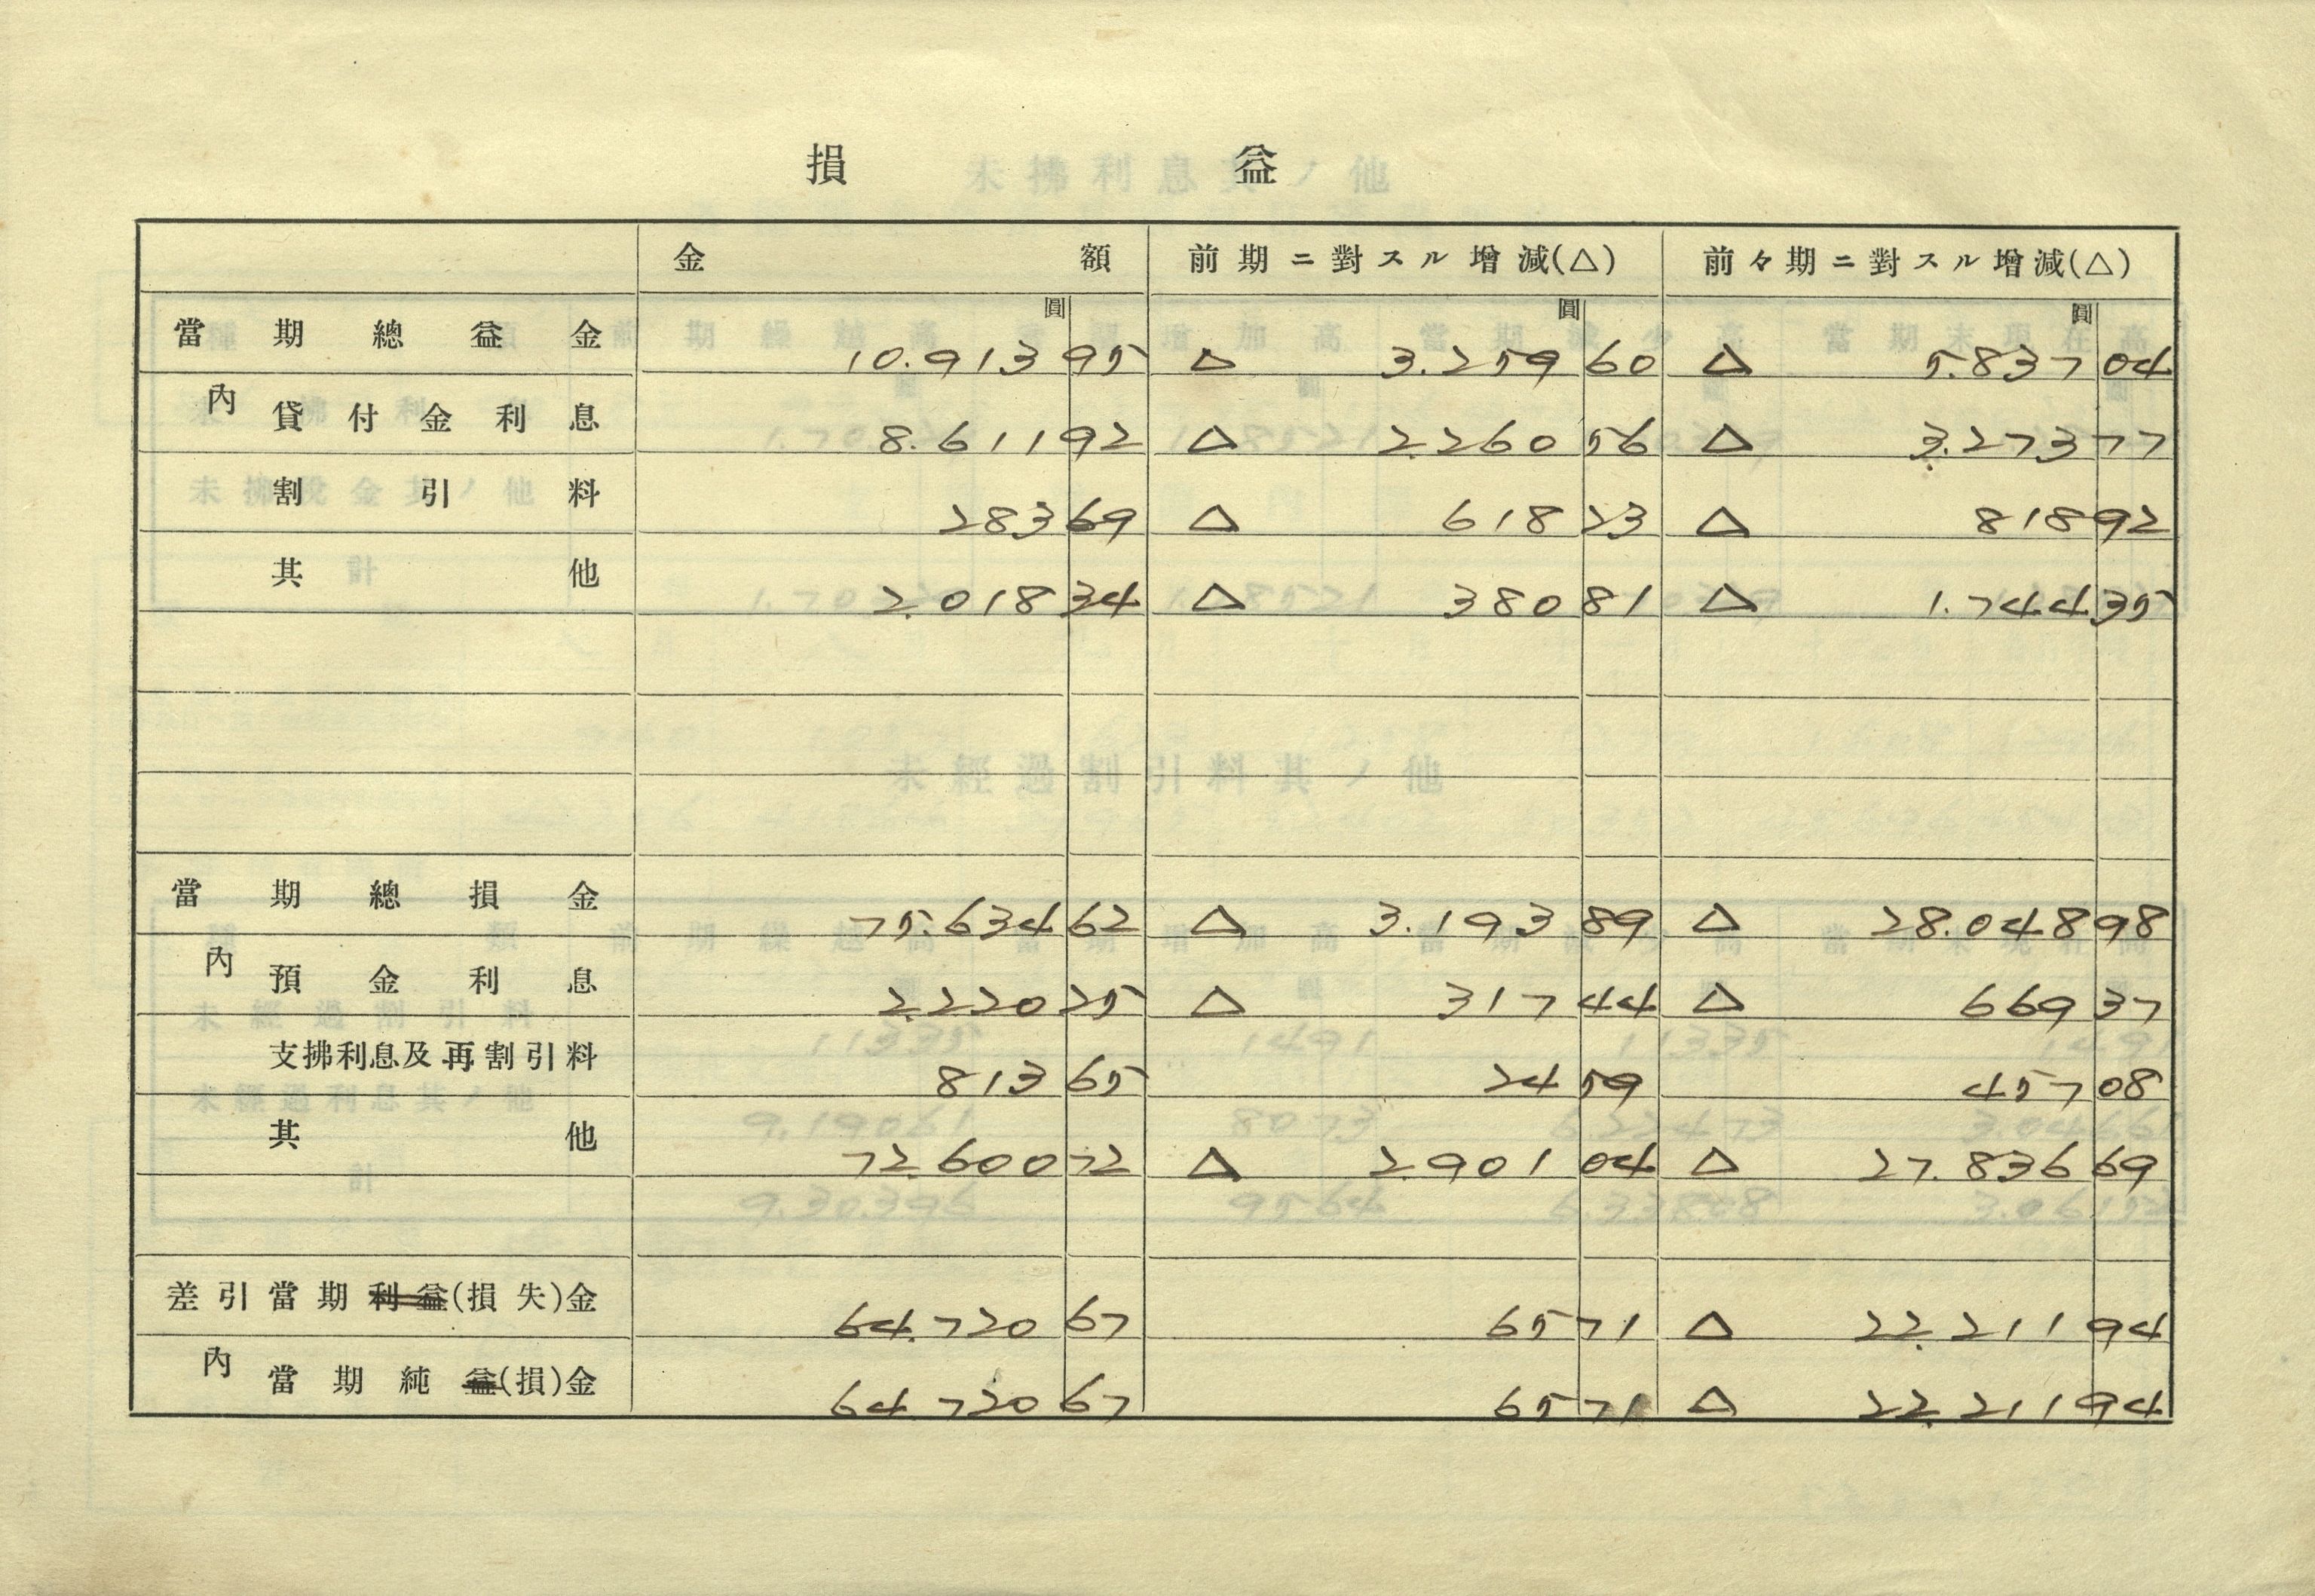 損益
金額 前期ニ對スル增減(△) 前々期ニ對スル增減(△)
圓 圓 圓
當期總益金 10.913 95 △ 3.259 60 △ 5.837 04
內 貸付金利息 8.611 92 △ 2.260 56 △ 3.273 77
割引料 283 69 △ 618 23 △ 818 92
其他 2.018 34 △ 380 81 △ 1.744 35
當期總損金 75.634 62 △ 3.193 89 △ 28.048 98
內 預金利息 2.220 25 △ 317 44 △ 669 37
支拂利息及再割引料 813 65 24 59 457 08
其他 72.600 72 △ 2.901 04 △ 27.836 69
差引當期利益(損失)金 64.720 67 65 71 △ 22.211 94
內 當期純益(損)金 64.720 67 65 71 △ 22.211 94